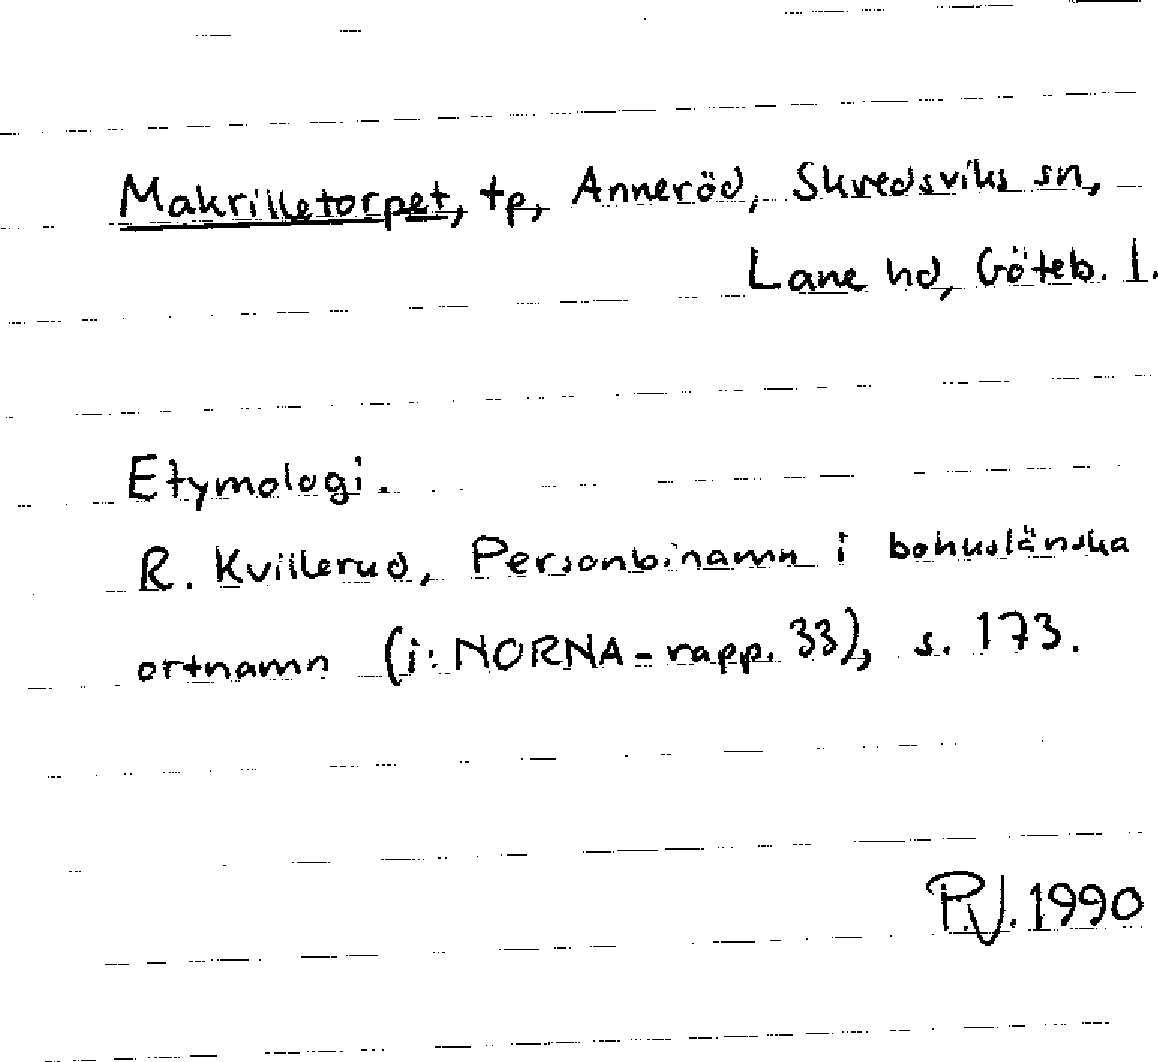 Makrilletorpet, tp, Anneröd, Skredsviks sn,
Lane hd, Göteb. l.
Etymologi.
R. Kvillerud, Personbinamn i bohuslänska
ortnamn (i: NORNA-rapp. 33), s. 173.
P.V. 1990